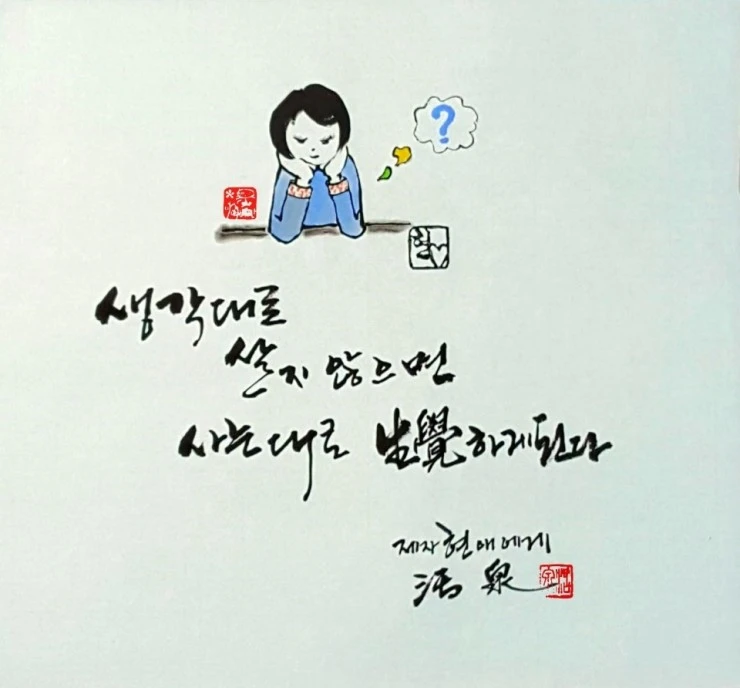 ?
생각대로
살지 않으면
사는대로 生覺하게된다
제자 현애에게
泉